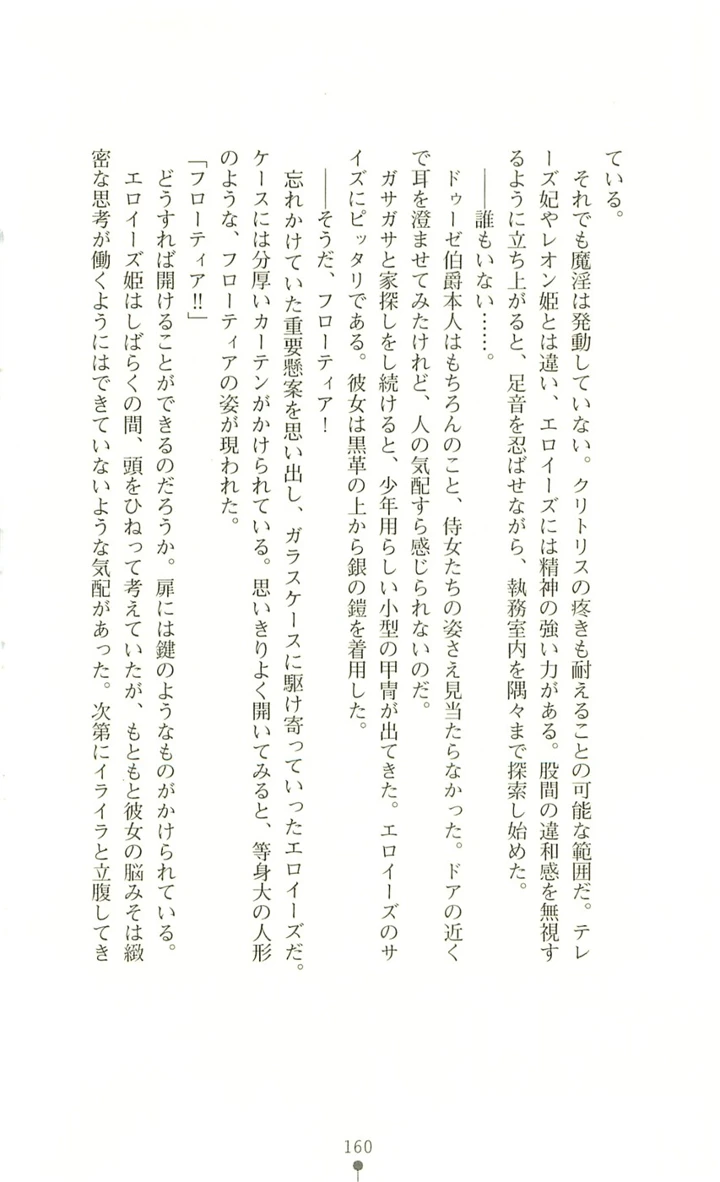 ている。
　それでも魔淫は発動していない。クリトリスの疼きも耐えることの可能な範囲だ。テレ
ーズ妃やレオン姫とは違い、エロイーズには精神の強い力がある。股間の違和感を無視す
るように立ち上がると、足音を忍ばせながら、執務室内を隅々まで探索し始めた。
　――誰もいない……。
　ドゥーゼ伯爵本人はもちろんのこと、侍女たちの姿さえ見当たらなかった。ドアの近く
で耳を澄ませてみたけれど、人の気配すら感じられないのだ。
　ガサガサと家探しをし続けると、少年用らしい小型の甲冑が出てきた。エロイーズのサ
イズにピッタリである。彼女は黒革の上から銀の鎧を着用した。
　――そうだ、フローティア！
　忘れかけていた重要懸案を思い出し、ガラスケースに駆け寄っていったエロイーズだ。
ケースには分厚いカーテンがかけられている。思いきりよく開いてみると、等身大の人形
のような、フローティアの姿が現われた。
「フローティア!!」
　どうすれば開けることができるのだろうか。扉には鍵のようなものがかけられている。
　エロイーズ姫はしばらくの間、頭をひねって考えていたが、もともと彼女の脳みそは緻
密な思考が働くようにはできていないような気配があった。次第にイライラと立腹してき
160